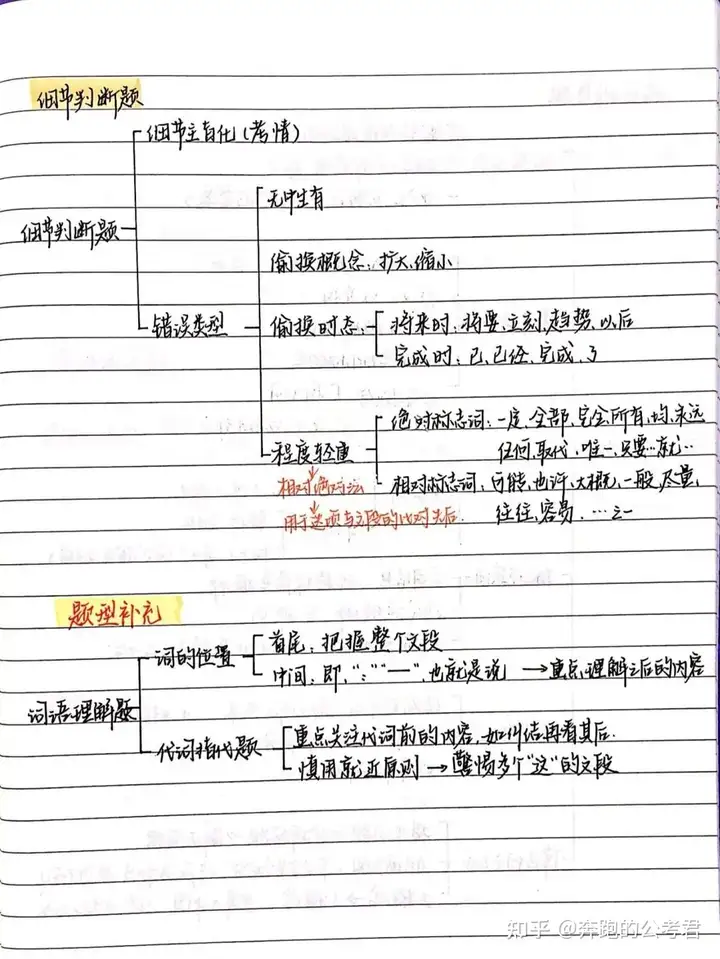 细节判断题
细节主旨化(考情)
无中生有
细节判断题
偷换概念:扩大、缩小
错误类型
偷换时态
将来时:将要、立刻、趋势、以后
完成时:已、已经、完成、了
程度轻重
绝对标志词:一定、全部、完全、所有、均、永远
任何、取代、唯一、只要…就…
相对绝对法
相对标志词:可能、也许、大概、一般、尽量、
往往、容易、…之一
用于选项与文段的比对先后.
题型补充
词的位置
首尾:把握整个文段
中间:即、":""——"、也就是说 → 重点理解之后的内容
词语理解题
代词指代题
重点关注代词前的内容,如纠结再看其后.
慎用就近原则 → 警惕多个"这"的文段
知乎 @奔跑的公考君